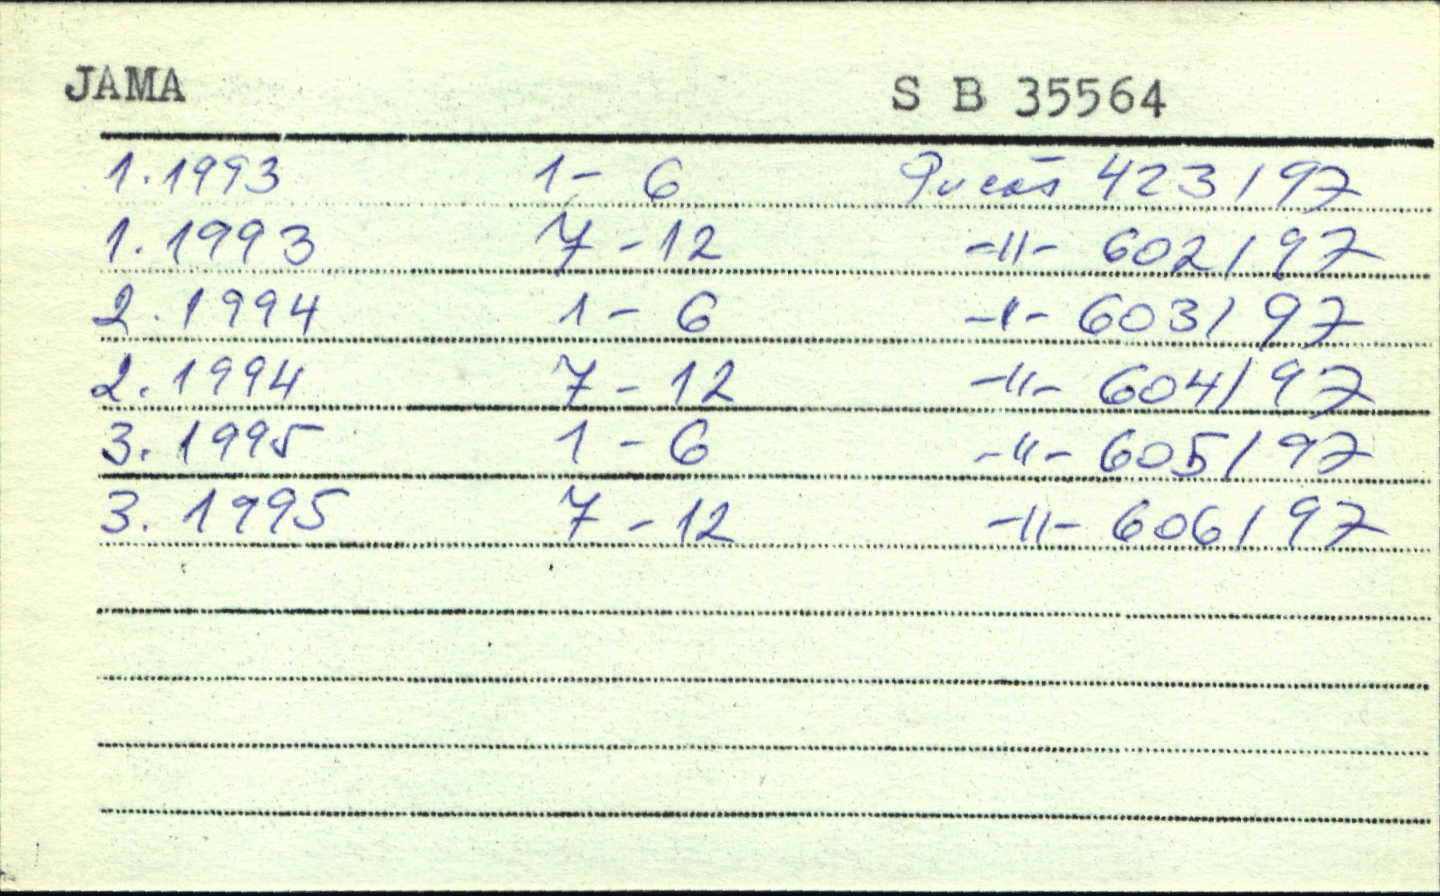 JAMA S B 35564
1. 1993 1 - 6 423/97
1. 1993 7 - 12 -"- 602/97
2. 1994 1 - 6 -"- 603/97
2. 1994 7 - 12 -"- 604/97
3. 1995 1 - 6 -"- 605/97
3. 1995 7 - 12 -"- 606/97